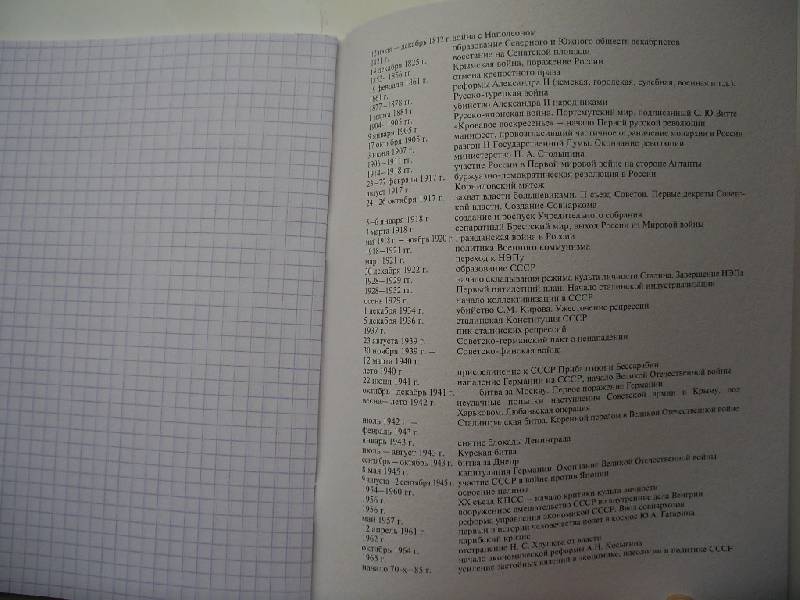 12 июня — декабрь 1812 г. война с Наполеоном
1821 г. образование Северного и Южного обществ декабристов
14 декабря 1825 г. восстание на Сенатской площади
1853–1856 гг. Крымская война, поражение России
февраля 1861 г. отмена крепостного права
реформы Александра II (земская, городская, судебная, военная и т.д.)
1877–1878 гг. Русско-турецкая война
1 марта 1881 г. убийство Александра II народниками
1904–1905 гг. Русско-японская война. Портсмутский мир, подписанный С. Ю. Витте
9 января 1905 г. «Кровавое воскресенье» — начало Первой русской революции
17 октября 1905 г. манифест, провозгласивший частичное ограничение монархии в России
3 июня 1907 г. разгон II Государственной Думы. Окончание революции
министерство П. А. Столыпина
1914–1918 гг. участие России в Первой мировой войне на стороне Антанты
февраля 1917 г. буржуазно-демократическая революция в России
август 1917 г. Корниловский мятеж
24–26 октября 1917 г. захват власти большевиками. II съезд Советов. Первые декреты Совет-
ской власти. Создание Совнаркома
5–6 января 1918 г. создание и роспуск Учредительного собрания
3 марта 1918 г. сепаратный Брестский мир, выход России из Мировой войны
май 1918 г. — ноябрь 1920 г. гражданская война в России
1918–1921 гг. политика Военного коммунизма
март 1921 г. переход к НЭПу
30 декабря 1922 г. образование СССР
1928–1929 гг. начало складывания режима культа личности Сталина. Завершение НЭПа
1928–1932 гг. Первый пятилетний план. Начало сталинской индустриализации
осень 1929 г. начало коллективизации в СССР
1 декабря 1934 г. убийство С.М. Кирова. Ужесточение репрессий
5 декабря 1936 г. сталинская Конституция СССР
1937 г. пик сталинских репрессий
23 августа 1939 г. Советско-германский пакт о ненападении
30 ноября 1939 г. — Советско-финская война
12 марта 1940 г.
лето 1940 г. присоединение к СССР Прибалтики и Бессарабии
22 июня 1941 г. нападение Германии на СССР, начало Великой Отечественной войны
октябрь – декабрь 1941 г. битва за Москву. Первое поражение Германии
весна – лето 1942 г. неудачные попытки наступления Советской армии в Крыму, под
Харьковом. Любанская операция
июль 1942 г. — Сталинградская битва. Коренной перелом в Великой Отечественной войне
февраль 1943 г.
январь 1943 г. снятие блокады Ленинграда
июль – август 1943 г. Курская битва
сентябрь – октябрь 1943 г. битва за Днепр
8 мая 1945 г. капитуляция Германии. Окончание Великой Отечественной войны
9 августа – 2 сентября 1945 г. участие СССР в войне против Японии
1954–1960 гг. освоение целины
1956 г. XX съезд КПСС – начало критики культа личности
1956 г. вооруженное вмешательство СССР во внутренние дела Венгрии
май 1957 г. реформа управления экономикой СССР. Ввод совнархозов
12 апреля 1961 г. первый в истории человечества полет в космос Ю.А. Гагарина
1962 г. карибский кризис
октябрь 1964 г. отстранение Н. С. Хрущева от власти
1965 г. начало экономической реформы А.Н. Косыгина
начало 70-х–85 г. усиление застойных явлений в экономике, идеологии и политике СССР